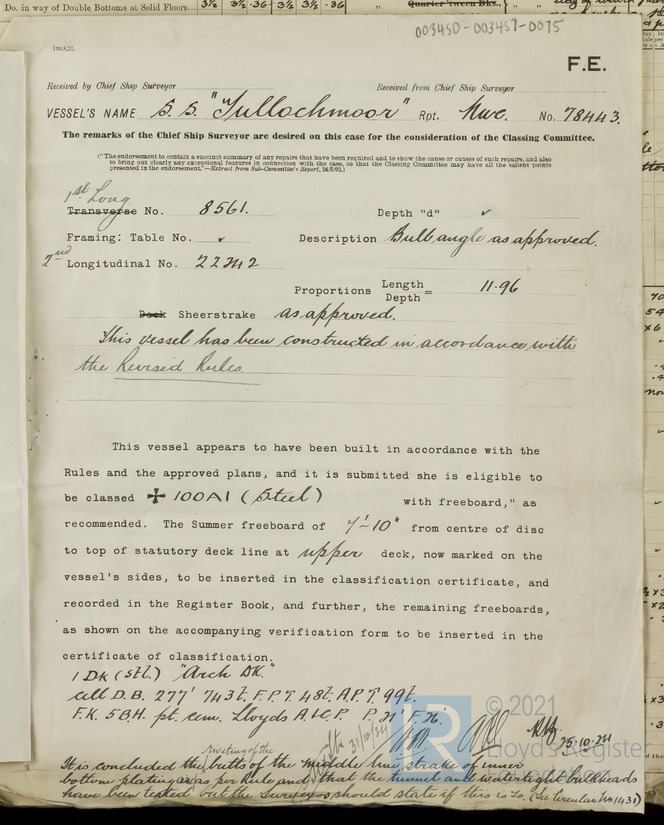 Do. in way of Double Bottoms at Solid Floors... 3½ 3½ .36 3½ 3½ .36 " Quarter 'tween Dks.,
003450-003457-0075
1m,8,21.
F.E.
Received by Chief Ship Surveyor Received from Chief Ship Surveyor
VESSEL'S NAME S.S. "Tullochmoor" Rpt. Nwc. No. 78443.
The remarks of the Chief Ship Surveyor are desired on this case for the consideration of the Classing Committee.
("The endorsement to contain a succinct summary of any repairs that have been required and to show the cause or causes of such repairs, and also
to bring out clearly any exceptional features in connection with the case, so that the Classing Committee may have all the salient points
presented in the endorsement."—Extract from Sub-Committee's Report, 24/5/92.)
1st Long
Transverse No. 8561. Depth "d" ✓
Framing: Table No. ✓ Description Bulb angle as approved.
2nd Longitudinal No. 22242
Proportions Length
Depth = 11.96
Deck Sheerstrake as approved.
This vessel has been constructed in accordance with
the Revised Rules.
This vessel appears to have been built in accordance with the
Rules and the approved plans, and it is submitted she is eligible to
be classed ✠ 100A1 (Steel) with freeboard," as
recommended. The Summer freeboard of 7'-10" from centre of disc
to top of statutory deck line at upper deck, now marked on the
vessel's sides, to be inserted in the classification certificate, and
recorded in the Register Book, and further, the remaining freeboards,
as shown on the accompanying verification form to be inserted in the
certificate of classification.
1 DK (Stl.) "Arch DK."
Cell D.B. 277' 743t. F.P.T. 48t. A.P.T. 99t.
F.K. 5BH. pt. cem. Lloyds A.&C.P.
© 2021
Lloyd's Register
31/10/24 25.10.24
meeting of the
It is concluded the butts of the middle line strake of inner
bottom plating as per Rule and that the tunnel and watertight bulkheads
have been tested but the Surveyors should state if this is so. (See Circular No 1431)